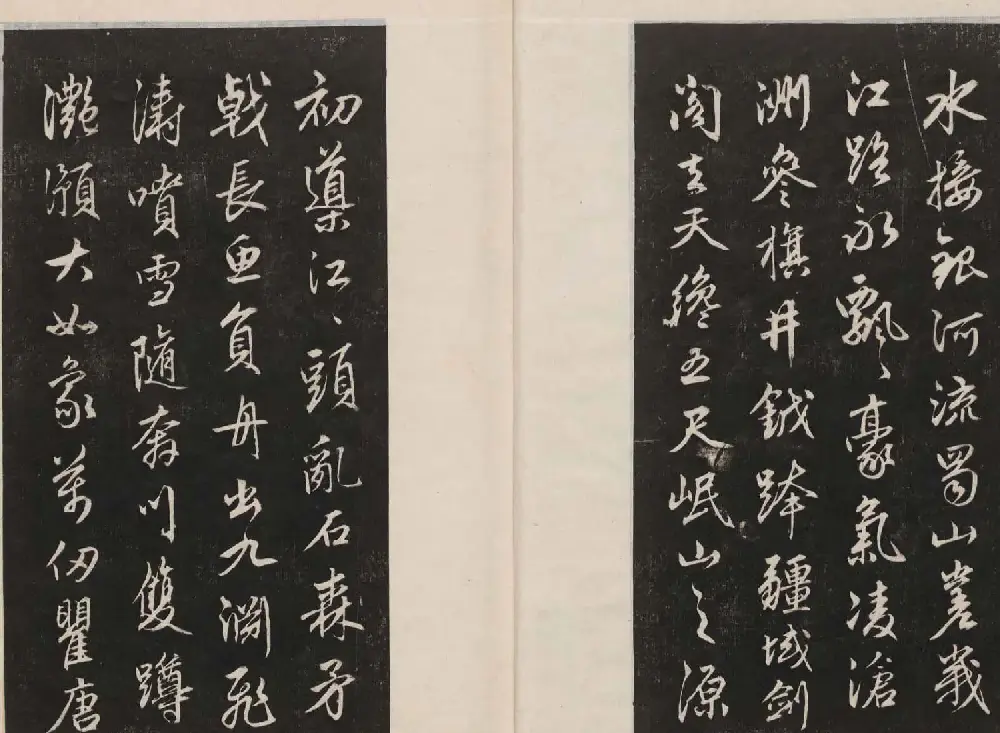 水接銀河流蜀山嵳峩
江路永飄〻豪氣凌滄
洲參旗井鉞跨疆域劍
閣去天纔五尺岷山之源
初導江〻頭亂石森矛
戟長魚負舟出九淵飛
濤噴雪隨奔川雙蹲
灔澦大如象萬仞瞿唐